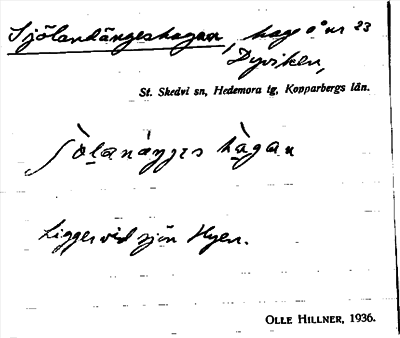 Sjölandängeshagan, hage å nr 23
Dyviken,
St. Skedvi sn, Hedemora tg, Kopparbergs län.
hàgan
Ligger vid sjön Hyen.
OLLE HILLNER, 1936.